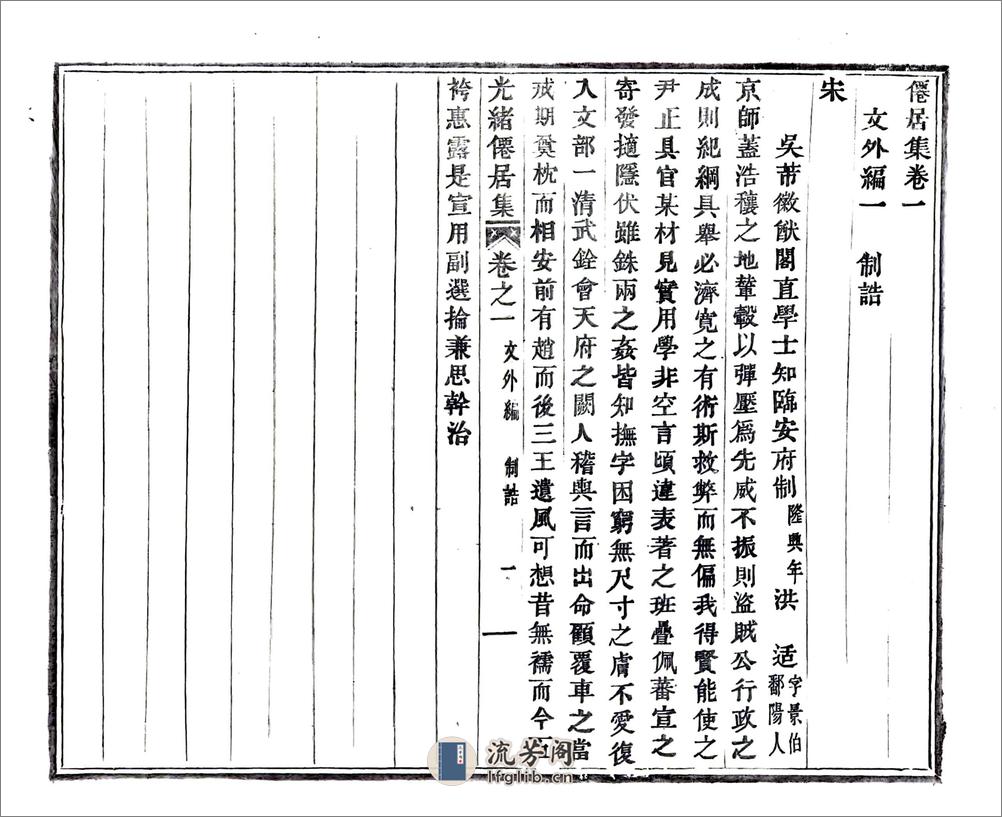 僊居集卷一
文外編一 制誥
宋
吳芾徽猷閣直學士知臨安府制 隆興年 洪 适 字景伯 鄱陽人
京師蓋浩穰之地輦轂以彈壓爲先威不振則盜賊公行政之
成則紀綱具舉必濟寬之有術斯救弊而無偏我得賢能使之
尹正具官某材見實用學非空言頃違表著之班疊佩蕃宣之
寄發擿隱伏雖銖兩之姦皆知撫字困窮無尺寸之膚不愛復
入文部一清武銓會天府之闕人稽輿言而出命顧覆車之當
戒期奠枕而相安前有趙而後三王遺風可想昔無襦而今五
光緒僊居集 卷之一 文外編 制誥 一
袴惠露是宣用副選掄兼思幹治
流芳阁
lfglib.cn